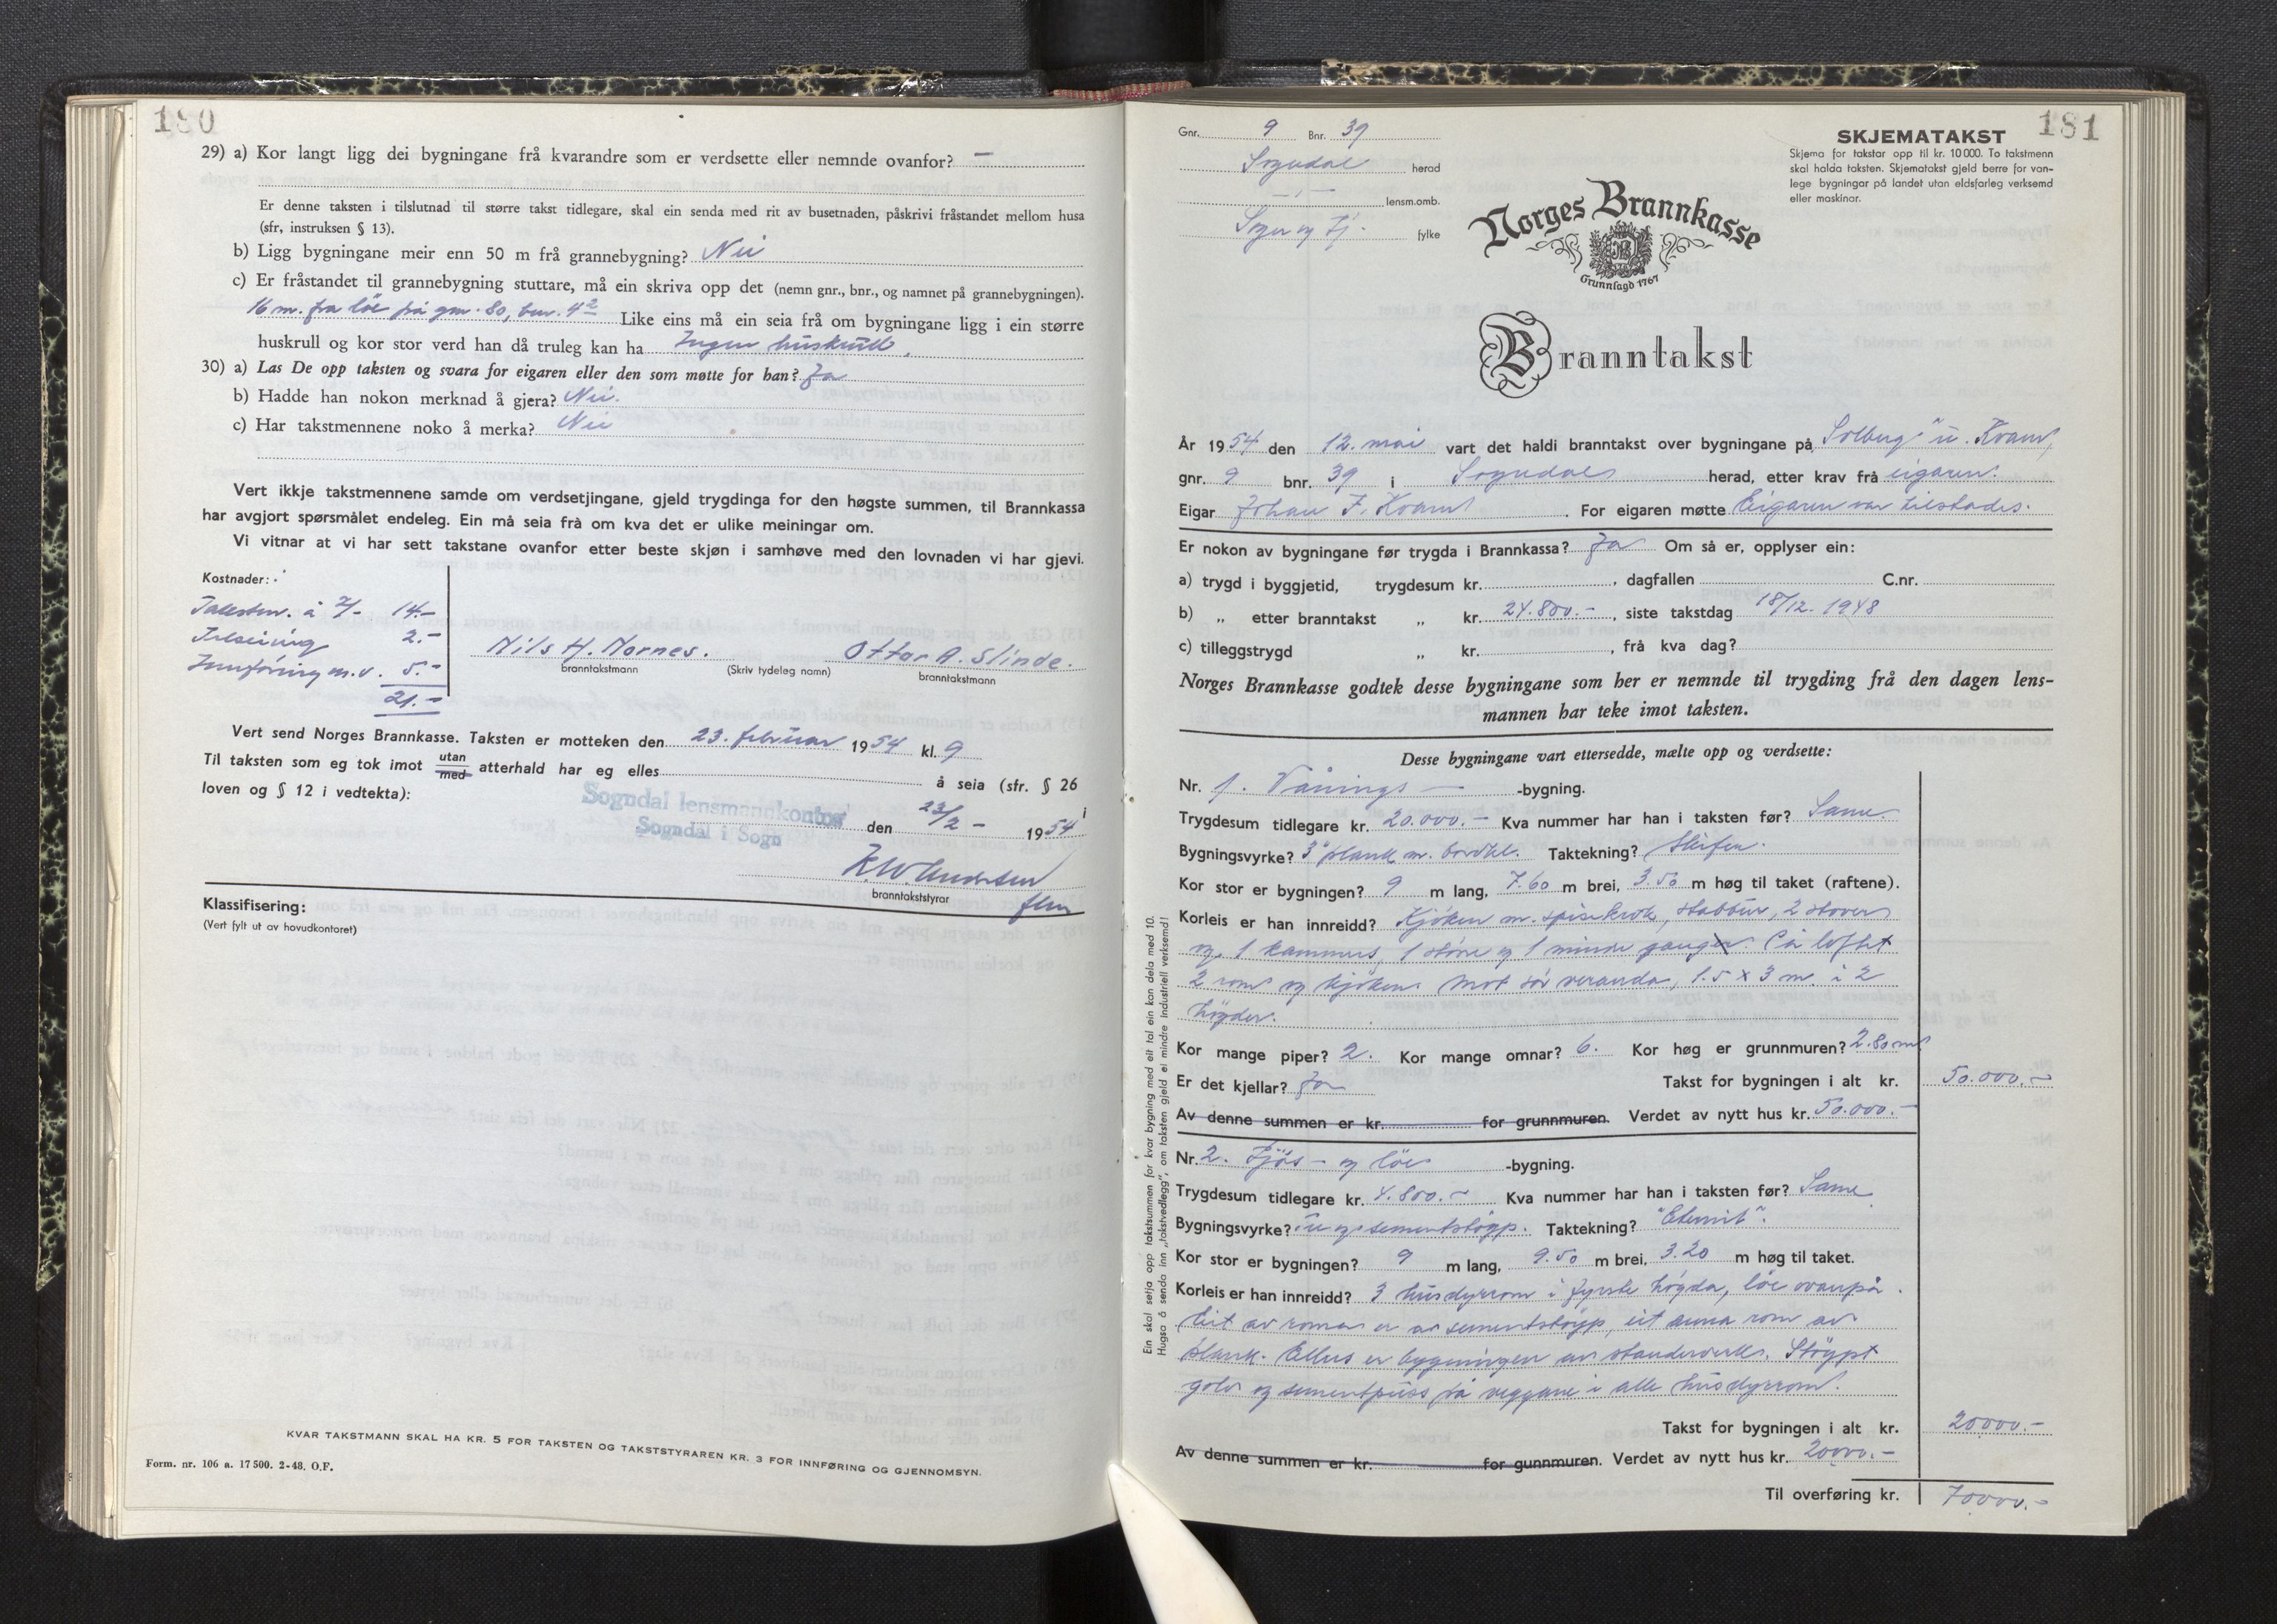 180
29) a) Kor langt ligg dei bygningane frå kvarandre som er verdsette eller nemnde ovanfor? —
Er denne taksten i tilslutnad til større takst tidlegare, skal ein senda med rit av busetnaden, påskrivi fråstandet mellom husa
(sfr, instruksen § 13).
b) Ligg bygningane meir enn 50 m frå grannebygning? Nei
c) Er fråstandet til grannebygning stuttare, må ein skriva opp det (nemn gnr., bnr., og namnet på grannebygningen).
16 m. fra löe på gnr. 80, bnr. 4² Like eins må ein seia frå om bygningane ligg i ein større
huskrull og kor stor verd han då truleg kan ha Ingen huskrull.
30) a) Las De opp taksten og svara for eigaren eller den som møtte for han? Ja
b) Hadde han nokon merknad å gjera? Nei.
c) Har takstmennene noko å merka? Nei
Vert ikkje takstmennene samde om verdsetjingane, gjeld trygdinga for den høgste summen, til Brannkassa
har avgjort spørsmålet endeleg. Ein må seia frå om kva det er ulike meiningar om.
Vi vitnar at vi har sett takstane ovanfor etter beste skjøn i samhøve med den lovnaden vi har gjevi.
Kostnader:
Takstm. à 7/- 14.-
Tilseiing 2.-
Innföring m.v. 5.-
21.-
Nils H. Nornes. Ottar A. Slinde.
branntakstmann (Skriv tydeleg namn) branntakstmann
Vert send Norges Brannkasse. Taksten er motteken den 23. februar 1954 kl. 9
Til taksten som eg tok imot utan
med atterhald har eg elles å seia (sfr. § 26
loven og § 12 i vedtekta):
Sogndal lensmannkontor i
Sogndal i Sogn den 23/2 - 1954
K.W. Andersen
branntakststyrar flm
Klassifisering:
(Vert fylt ut av hovudkontoret)
KVAR TAKSTMANN SKAL HA KR. 5 FOR TAKSTEN OG TAKSTSTYRAREN KR. 3 FOR INNFØRING OG GJENNOMSYN.
Form. nr. 106 a. 17 500. 2-48. O.F.
181
Gnr. 9 Bnr. 39
Sogndal herad
- " - lensm.omb.
Sogn og Fj. fylke
SKJEMATAKST
Skjema for takstar opp til kr. 10 000. To takstmenn
skal halda taksten. Skjematakst gjeld berre for van-
lege bygningar på landet utan eldsfarleg verksemd
eller maskinar.
Norges Brannkasse
Grunnlagd 1767
Branntakst
År 1954 den 12. mai vart det haldi branntakst over bygningane på Solberg" u. Kvam,
gnr. 9 bnr. 39 i Sogndal herad, etter krav frå eigaren.
Eigar Johan F. Kvam. For eigaren møtte Eigaren var tilstades.
Er nokon av bygningane før trygda i Brannkassa? Ja Om så er, opplyser ein:
a) trygd i byggjetid, trygdesum kr. , dagfallen C.nr.
b) „ etter branntakst „ kr. 24.800.- , siste takstdag 18/12. 1948
c) tilleggstrygd „ kr. , frå kva dag?
Norges Brannkasse godtek desse bygningane som her er nemnde til trygding frå den dagen lens-
mannen har teke imot taksten.
Desse bygningane vart ettersedde, mælte opp og verdsette:
Nr. 1. Vånings — -bygning.
Trygdesum tidlegare kr. 20.000.- Kva nummer har han i taksten før? Same.
Bygningsvyrke? 3" plank m. bordkl. Taktekning? Skifer.
Kor stor er bygningen? 9 m lang, 7.60 m brei, 3.50 m høg til taket (raftene).
Korleis er han innreidd? Kjöken m. spisekrok, stabbur, 2 stover
og 1 kammers, 1 störe og 1 mindre gang. På loftet
2 rom og kjöken. Mot sör veranda, 1.5 x 3 m. i 2
högder.
Kor mange piper? 2. Kor mange omnar? 6. Kor høg er grunnmuren? 2.80 m
Er det kjellar? Ja Takst for bygningen i alt kr. 50.000.-
Av denne summen er kr. for grunnmuren. Verdet av nytt hus kr. 50.000.-
Nr. 2. Fjös- og löe -bygning.
Trygdesum tidlegare kr. 4.800.- Kva nummer har han i taksten før? Same
Bygningsvyrke? tre og sementstöyp. Taktekning? "Eternit".
Kor stor er bygningen? 9 m lang, 9.50 m brei, 3.20 m høg til taket.
Korleis er han innreidd? 3 husdyrrom i fyrste högda, löe ovanpå.
Eit av romma er av sementstöyp, eit anna rom av
plank. Elles er bygningen av standerverk. Stöypt
golv og sementpuss på veggane i alle husdyrrom.
Takst for bygningen i alt kr. 20000.-
Av denne summen er kr. for gunnmuren. Verdet av nytt hus kr. 20000.-
Til overføring kr. 70000.-
Ein skal setja opp takstsummen for kvar bygning med eit tal ein kan dela med 10.
Hugsa å senda inn „takstvedlegg", om taksten gjeld ei mindre Industriell verksemd!